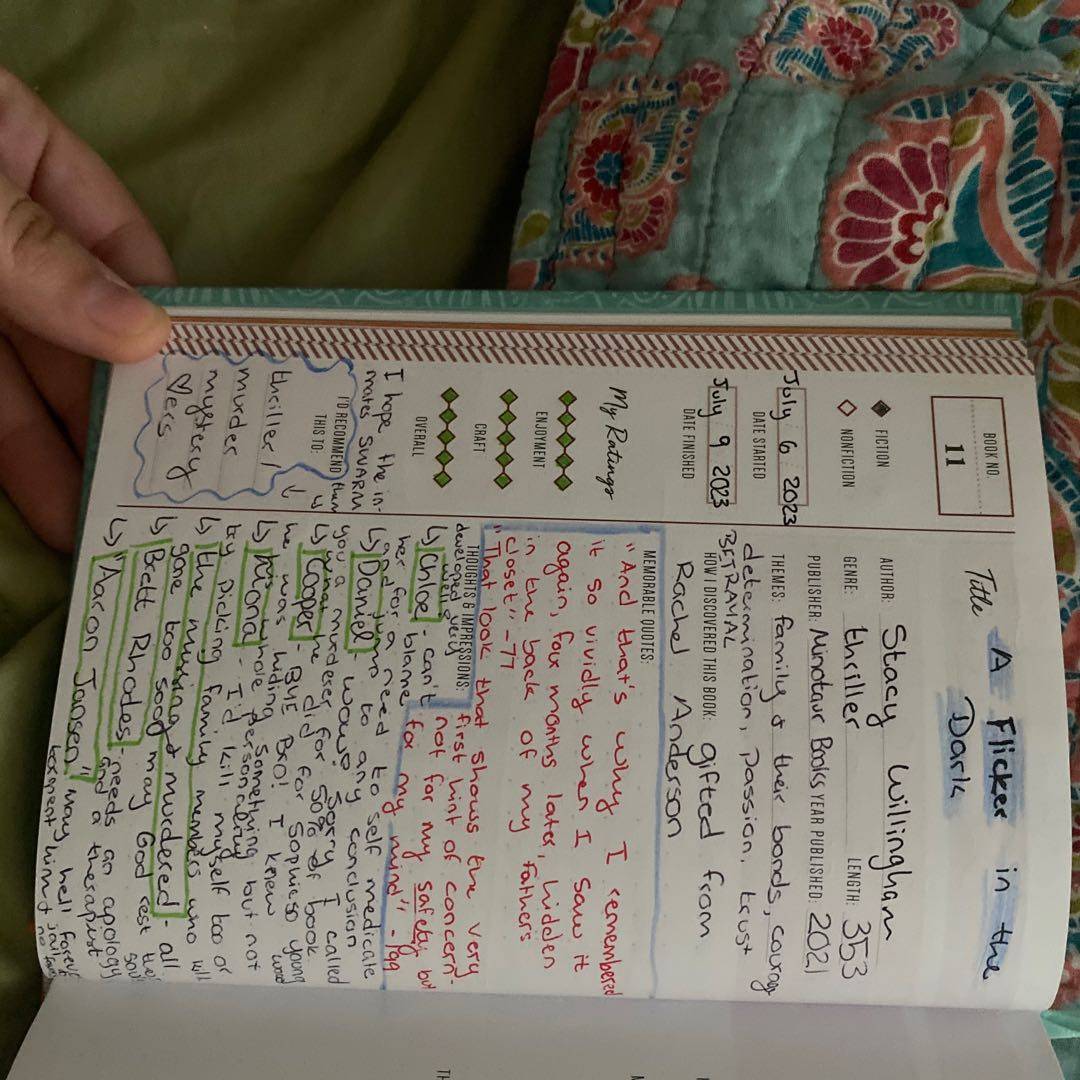 Title A Flicker in the
Dark
BOOK NO.
11
FICTION
NONFICTION
July 6 2023
DATE STARTED
July 9 2023
DATE FINISHED
My Ratings
ENJOYMENT
CRAFT
OVERALL
I hope the in-
mates SWARM
him
I'D RECOMMEND
THIS TO:
thriller/
murder
mystery
♡ers
AUTHOR: Stacy Willingham
GENRE: thriller LENGTH: 353
PUBLISHER: Minotaur Books YEAR PUBLISHED: 2021
THEMES: family & their bonds, courage
determination, passion, trust
BETRAYAL
HOW I DISCOVERED THIS BOOK: gifted from
Rachel Anderson
MEMORABLE QUOTES:
"And that's why I remembered
it so vividly when I saw it
again, four months later, hidden
in the back of my fathers
closet" -77
"That look that shows the very
first hint of concern-
not for my safety, but
for my mind" - 199
THOUGHTS & IMPRESSIONS:
developed very
well
↳ Chloe - can't
her for a need to self medicate
and jump to any conclusion
↳ Daniel - wow? Sorry I called
you a murderer for 50% of book
↳ Cooper - BYE Bro! I knew
he was hiding something but not
↳ - I'd kill myself too or
try picking family
↳ the missing family members who
gone too soon & murdered - all
↳ Brett Rhodes may God rest their
souls
needs an apology
and a therapist
↳ "Aaron Jansen" may hell forever
torment him